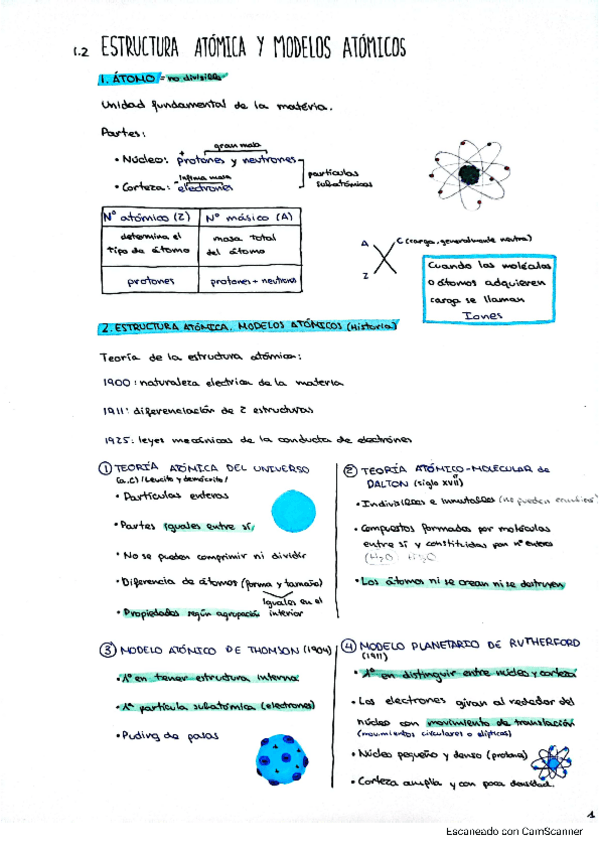 1.2 ESTRUCTURA ATÓMICA Y MODELOS ATÓMICOS
1. ÁTOMO = no divisible
Unidad fundamental de la materia.
Partes:
gran masa
• Núcleo: protones y neutrones
+
ínfima masa
• Corteza: electrones
-
partículas
subatómicas
Nº atómico (Z) Nº másico (A)
determina el
tipo de átomo
masa total
del átomo
protones
protones + neutrones
A
C (carga, generalmente neutra)
Z
Cuando las moléculas
o átomos adquieren
carga se llaman
Iones
2. ESTRUCTURA ATÓMICA. MODELOS ATÓMICOS (Historia)
Teoría de la estructura atómica:
1900: naturaleza electrica de la materia
1911: diferenciación de 2 estructuras
1925: leyes mecánicas de la conducta de electrónes
① TEORÍA ATÓMICA DEL UNIVERSO
(a.C) /Leucito y demócrito/
• Partículas enteras
• Partes iguales entre sí
• No se pueden comprimir ni dividir
• Diferencia de átomos (forma y tamaño)
iguales en el
interior
• Propiedades según agrupación
② TEORÍA ATÓMICO-MOLECULAR de
DALTON (siglo XVII)
• Indivisibles e inmutables (no pueden
• Compuestos formados por moléculas
entre sí y constituidas por nº enteros
• Los átomos ni se crean ni se destruyen
③ MODELO ATÓMICO DE THOMSON (1904)
• 1º en tener estructura interna
• 1ª partícula subatómica (electrones)
• Puding de pasas
④ MODELO PLANETARIO DE RUTHERFORD
(1911)
• 1º en distinguir entre núcleo y corteza
• Los electrones giran al rededor del
núcleo con movimiento de translación
(movimientos circulares o elípticos)
• Núcleo pequeño y denso (protones)
• Corteza amplia y con poca densidad.
1
Escaneado con CamScanner